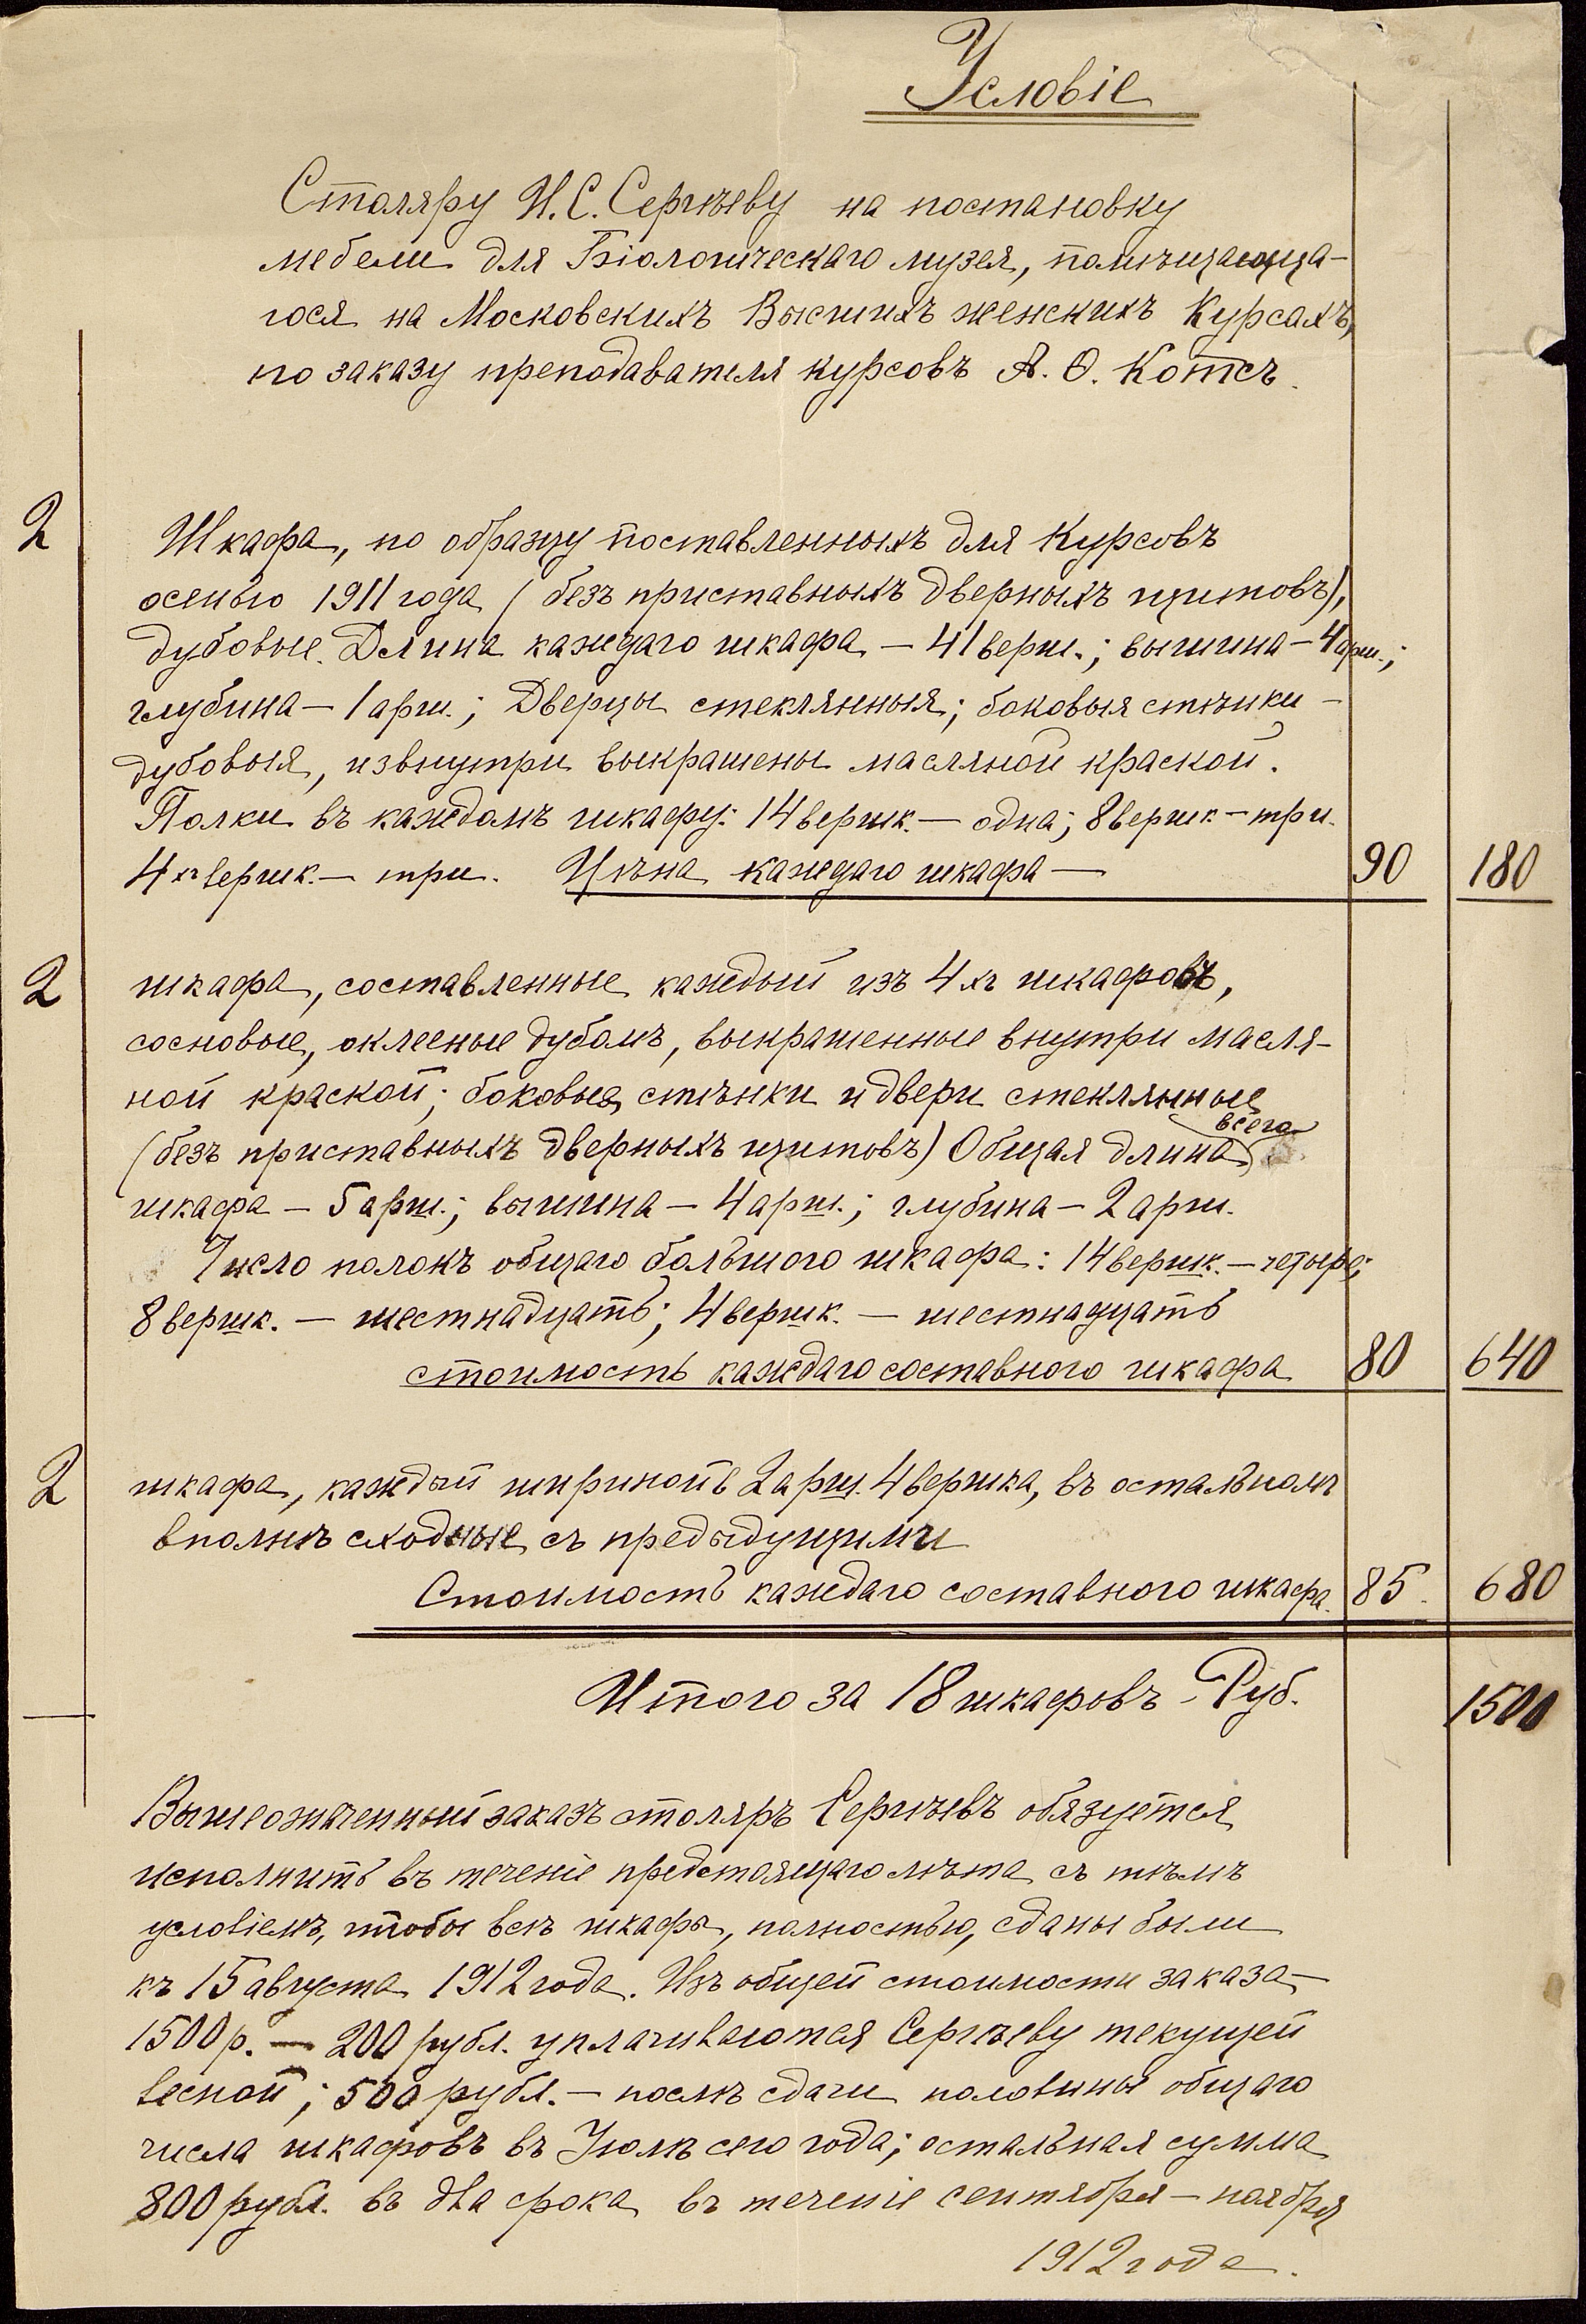 Условіе
Столяру И. С. Сергѣеву на постановку
мебели для Біологическаго музея, помѣщающа-
гося на Московскихъ Высшихъ женскихъ Курсахъ,
по заказу преподавателя курсовъ А. Ѳ. Котсъ.
2 Шкафа, по образцу поставленныхъ для Курсовъ
осенью 1911 года (безъ приставныхъ дверныхъ щитовъ),
дубовые. Длина каждаго шкафа – 41 верш.; вышина – 4 арш.;
глубина – 1 арш.; Дверцы стеклянныя; боковыя стѣнки –
дубовыя, извнутри выкрашены масляной краской.
Полки въ каждомъ шкафу: 14 вершк. – одна; 8 вершк. – три.
4хъ вершк. – три. Цѣна каждаго шкафа – 90 180
2 шкафа, составленные каждый изъ 4хъ шкафовъ,
сосновые, оклееные дубомъ, выкрашенные внутри масля-
ной краской; боковые стѣнки и двери стеклянные
(безъ приставныхъ дверныхъ щитовъ) Общая длина всего
шкафа – 5 арш.; вышина – 4 арш.; глубина – 2 арш.
Число полокъ общаго большого шкафа: 14 вершк. – четыре;
8 вершк. – шестнадцать; 4 вершк. – шестнадцать
стоимость каждаго составного шкафа 80 640
2 шкафа, каждый шириной въ 2 арш. 4 вершка, въ остальномъ
вполнѣ сходные съ предыдущими
Стоимость каждаго составного шкафа. 85. 680
Итого за 18 шкафовъ – Руб. 1500
Вышеозначенный заказъ столяръ Сергѣевъ обязуется
исполнить въ теченіе предстоящаго лѣта съ тѣмъ
условіемъ, чтобы всѣ шкафы, полностью, сданы были
къ 15 августа 1912 года. Изъ общей стоимости заказа –
1500 р. – 200 рубл. уплачиваются Сергѣеву текущей
весной; 500 рубл. – послѣ сдачи половины общаго
числа шкафовъ въ Іюлѣ сего года; остальная сумма
800 рубл. въ два срока въ теченіе сентября – ноября
1912 года.